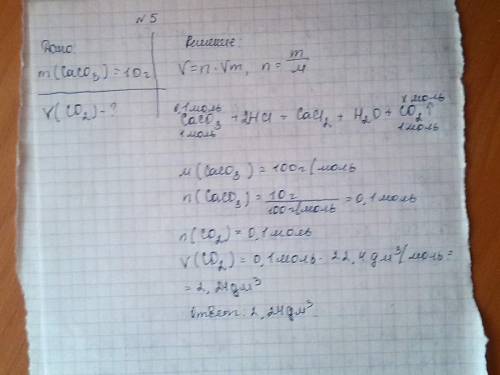 №5
Дано:
m(CaCO3)=10г
V(CO2)-?
Решение:
V=n·Vm, n=m/M
0,1моль х моль
CaCO3+2HCl=CaCl2+H2O+CO2↑
1моль 1моль
M(CaCO3)=100г/моль
n(CaCO3)=10г/100г/моль=0,1моль
n(CO2)=0,1моль
V(CO2)=0,1моль·22,4дм³/моль=
=2,24дм³
Ответ: 2,24дм³.